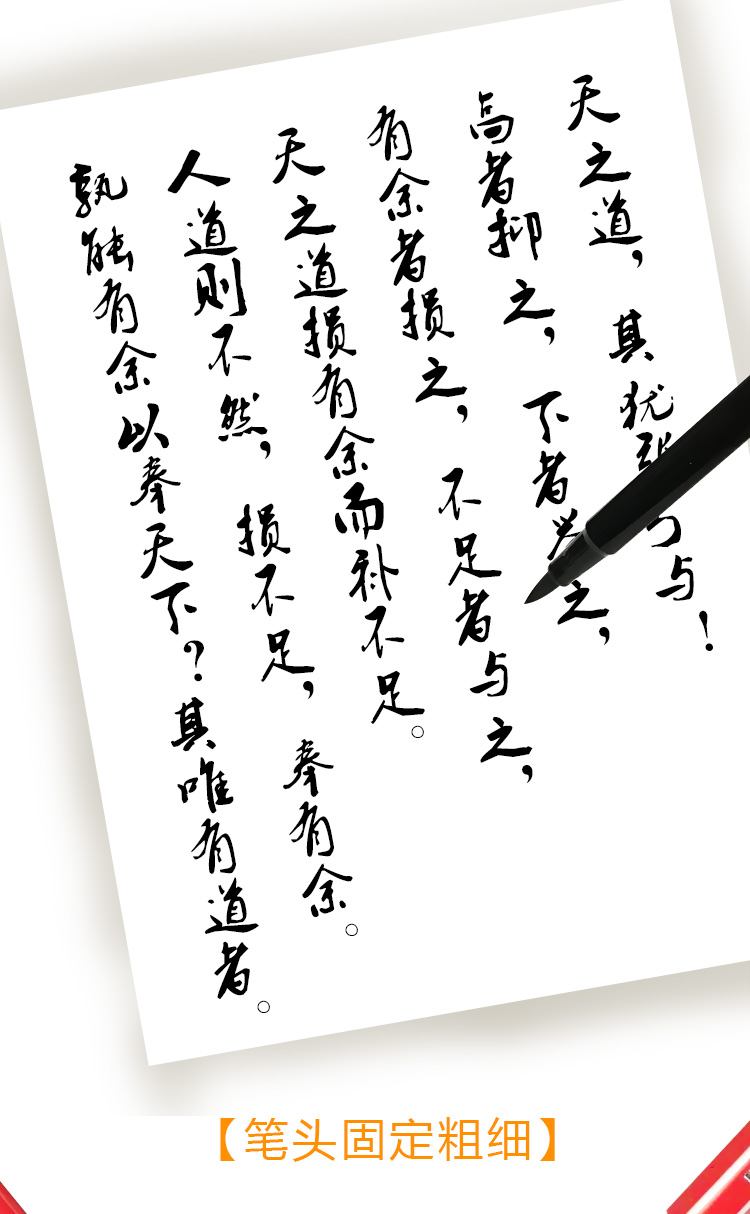 天之道，其犹与！
高者抑之，下者举之，
有余者损之，不足者与之，
天之道损有余而补不足。
人道则不然，损不足，奉有余。
孰能有余以奉天下？其唯有道者。
【笔头固定粗细】